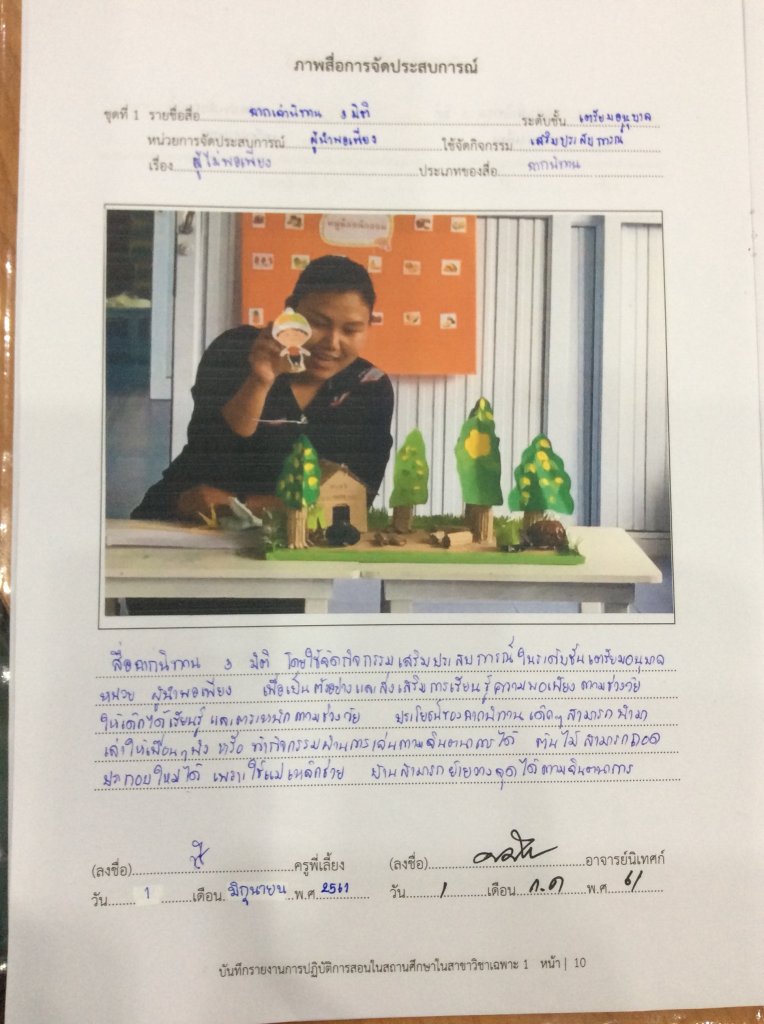 ภาพสื่อการจัดประสบการณ์
ชุดที่ 1 รายชื่อสื่อ ฉากเล่านิทาน 3 มิติ ระดับชั้น เตรียมอนุบาล
หน่วยการจัดประสบการณ์ ผู้นำพอเพียง ใช้จัดกิจกรรม เสริมประสบการณ์
เรื่อง ผู้ไม่พอเพียง ประเภทของสื่อ ฉากนิทาน
สื่อฉากนิทาน 3 มิติ โดยใช้จัดกิจกรรมเสริมประสบการณ์ในระดับชั้นเตรียมอนุบาล
หน่วย ผู้นำพอเพียง เพื่อเป็นตัวอย่างและส่งเสริมการเรียนรู้ความพอเพียงตามช่วงวัย
ให้เด็กได้เรียนรู้ และตระหนักตามช่วงวัย ประโยชน์ของฉากนิทานเด็กๆ สามารถนำมา
เล่าให้เพื่อนๆ ฟัง หรือ ทำกิจกรรมผ่านการเล่นตามจินตนาการได้ ต้นไม้สามารถถอด
ประกอบใหม่ได้ เพราะใช้แม่เหล็กช่วย บ้านสามารถย้ายวางจุดได้ตามจินตนาการ
(ลงชื่อ) ครูพี่เลี้ยง (ลงชื่อ) อาจารย์นิเทศก์
วัน 1 เดือน มิถุนายน พ.ศ 2561 วัน 1 เดือน ก.ค พ.ศ 61
บันทึกรายงานการปฏิบัติการสอนในสถานศึกษาในสาขาวิชาเฉพาะ 1 หน้า | 10